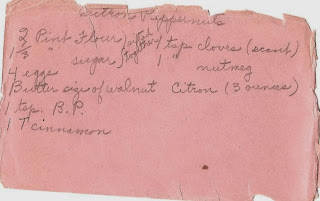 Citron Peppernuts
2 Pint Flour } sift together 1 tsp cloves (scant)
1 1/3 " sugar 1 " nutmeg
4 eggs
Butter size of walnut Citron (3 ounces)
1 tsp. B.P.
1 T cinnamon